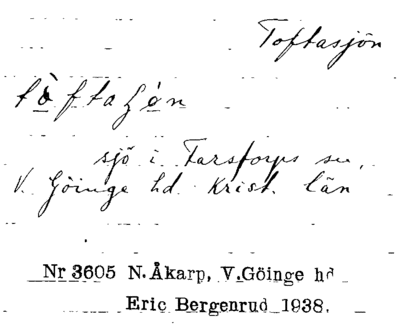 Toftasjön
tòftaʃón
sjö i Farstorps sn,
V. Göinge hd. Krist. län
Nr 3605 N. Åkarp, V. Göinge hd
Eric Bergenrud 1938.